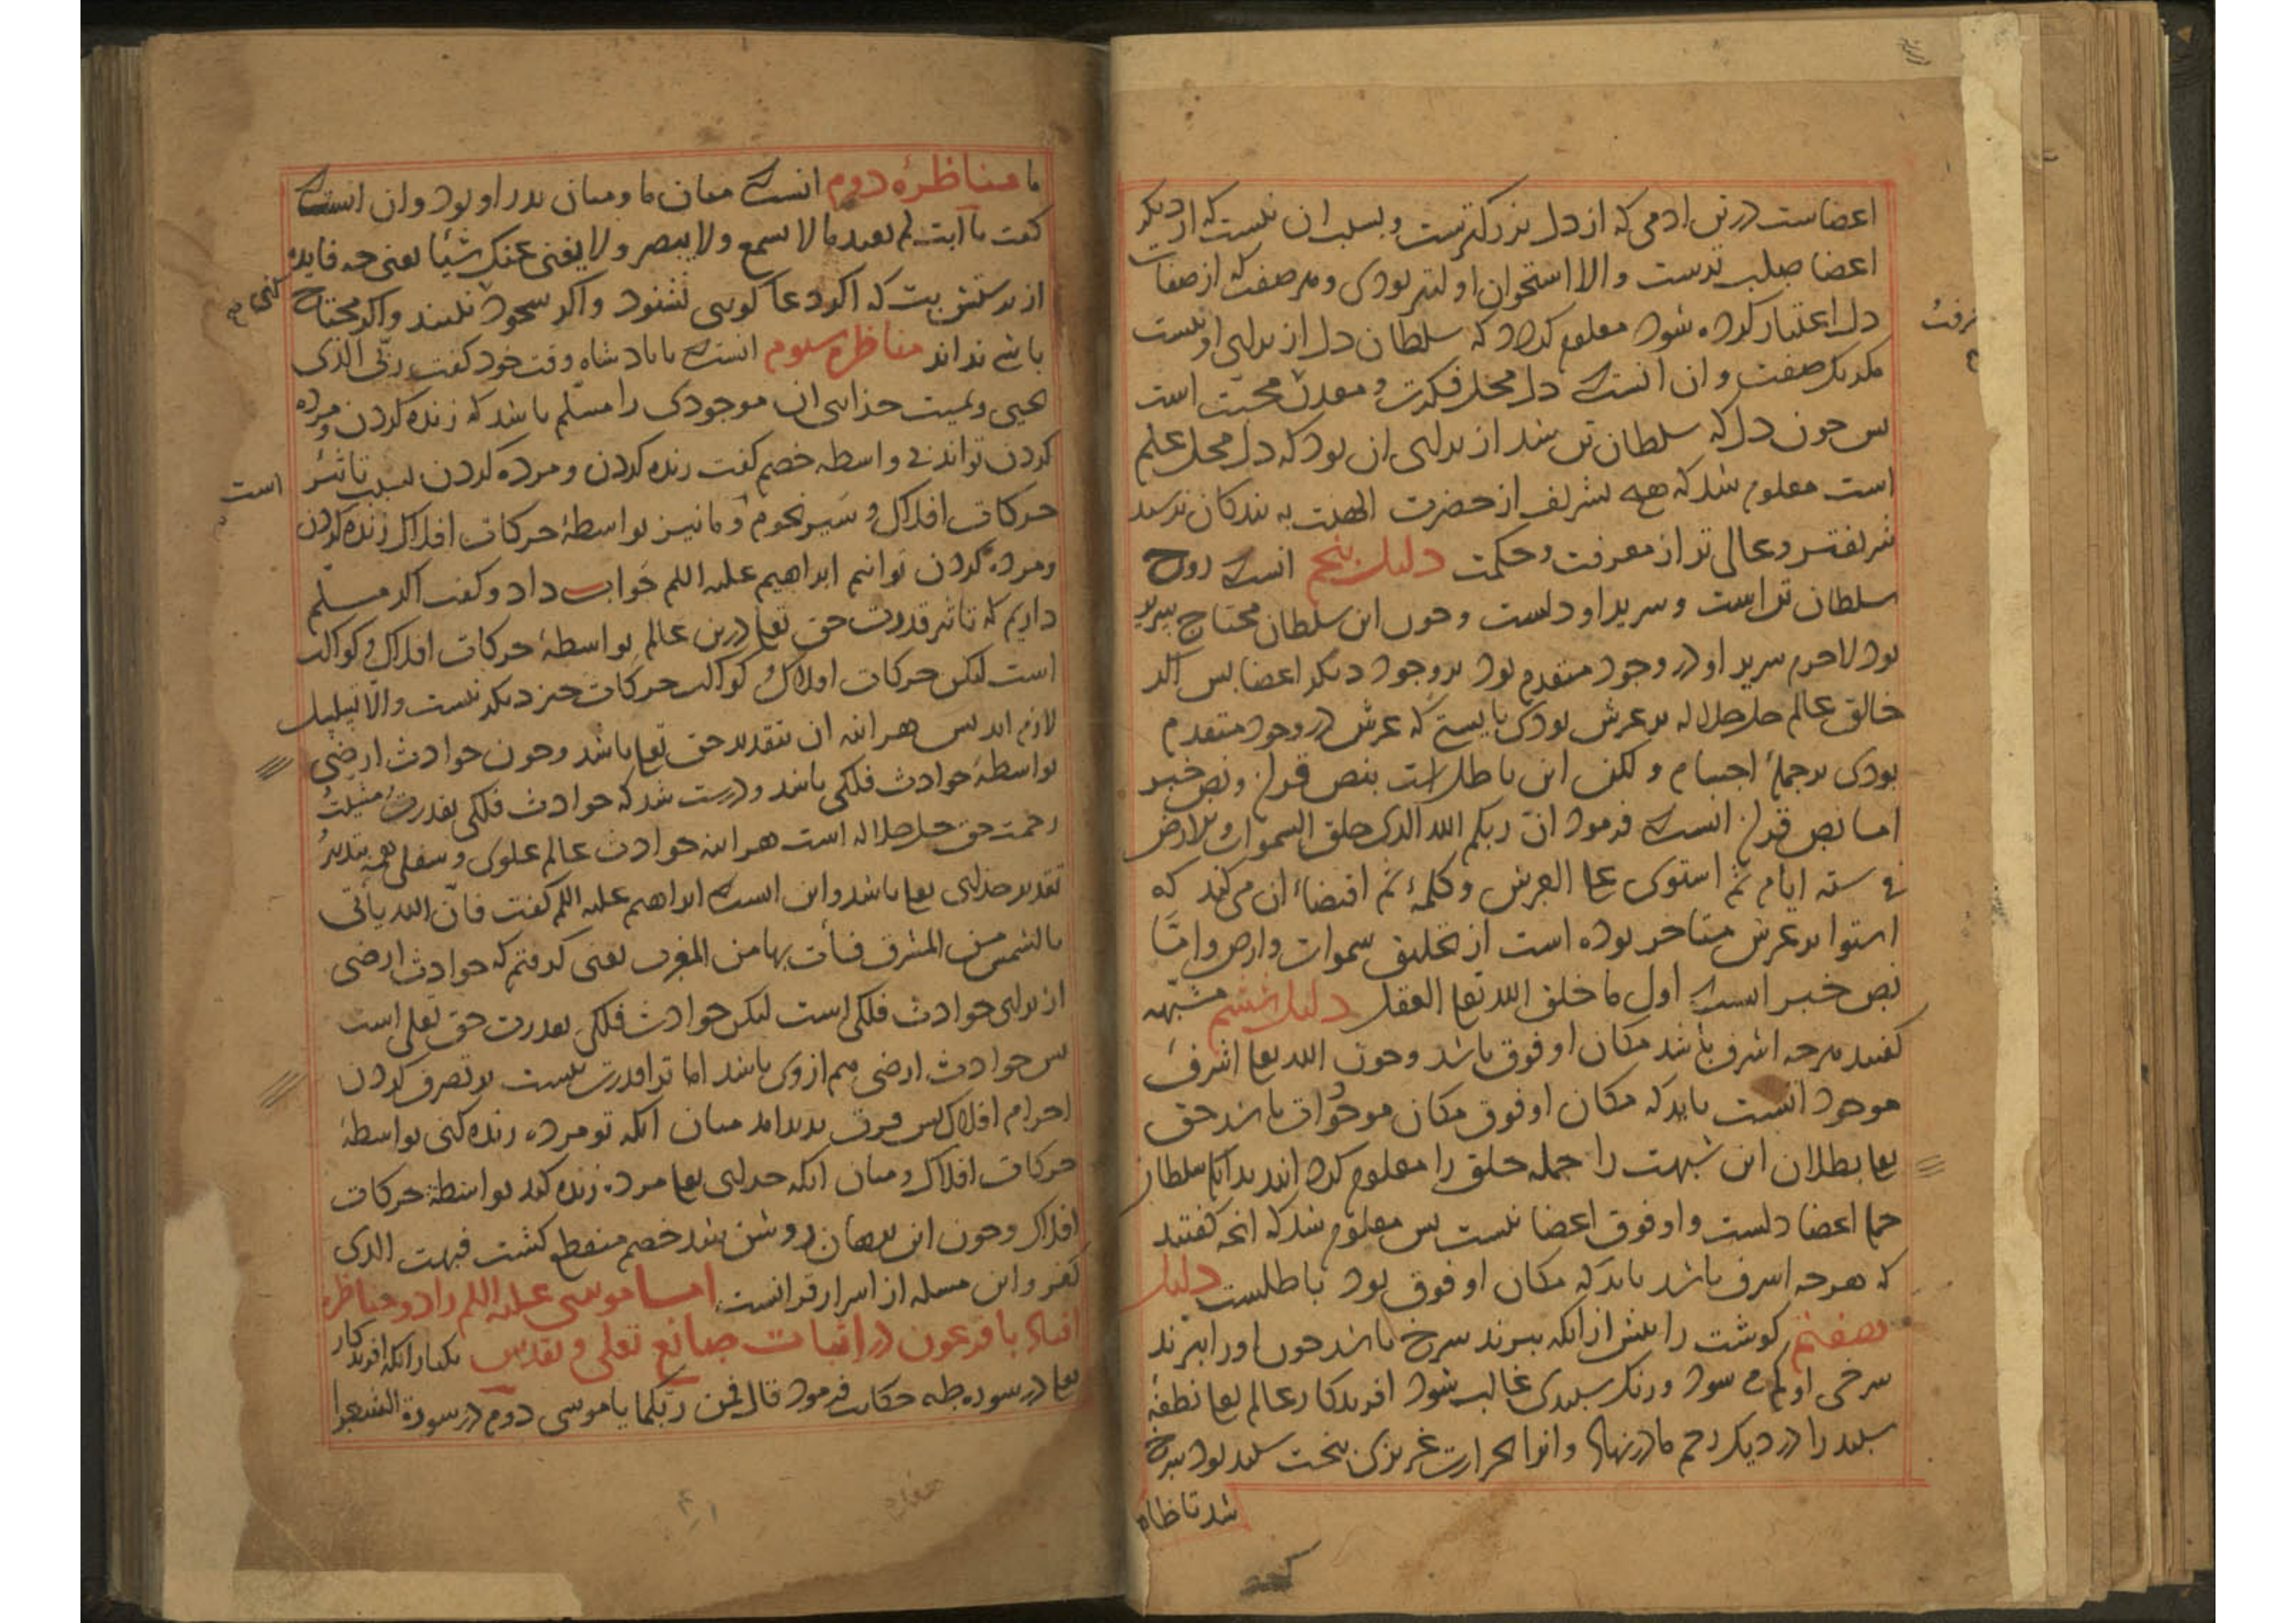 اعضاست در تن ادمی که از دل بزرکترست و بسلب ان نیست که از دیکر
اعضا صلب ترست والا استخوان اولیتر بودی و هر صفت که از صفات
دل اعتبار کرده شود معلوم کردد که سلطان دل از برای او نیست
مکر یک صفت و ان انست که دل محل فکرت و معدن محبت است
معرفت
بس چون دل که سلطان تن شد از برای ان بود که دل محل علم
است معلوم شد که هیچ تشریف از حضرت الهیت به بندکان نرسد
شریفتر و عالی تر از معرفت و حکمت دلیل پنجم انست که روح
سلطان تن است و سریر او دلست و چون این سلطان محتاج سریر
بود لاجرم سریر او در وجود متقدم بود بر وجود دیکر اعضا بس اکر
خالق عالم جل جلاله بر عرش بودی بایستی که عرش در وجود متقدم
بودی بر جملۀ اجسام و لکن این باطل است بنص قران و نص خبر
اما نص قران انست که فرمود ان ربکم الله الذی خلق السموات و الارض
فی ستة ایام ثم استوی علی العرش و کلمۀ ثم اقتضاء ان می کند که
استوا بر عرش متاخر بوده است از تخلیق سموات و ارض و اما
نص خبر انست که اول ما خلق الله تعا العقل دلیل ششم مشبهه
کفتند هر چه اشرف باشد مکان او فوق باشد و چون الله تعا اشرف
موجود انست باید که مکان او فوق مکان موجودات باشد حق
تعا بطلان این شبهت را جمله خلق را معلوم کرد انید بدانکه سلطان
جملۀ اعضا دلست و او فوق اعضا نیست بس معلوم شد که انچه کفتند
که هر چه اشرف باشد باید که مکان او فوق بود باطلست دلیل
هفتم کوشت را بیش از انکه ببزند سرخ باشد چون او را ببزند
سرخی او کم شود و رنک سبیدی غالب شود افریدکار عالم تعا نطفۀ
سبید را در دیک رحم مادر نهاد و انرا بحرارت غریزی بخت سبید بود سرخ
شد تا ظاهر
ما مناظرۀ دوم انست که میان ما و میان بدر او بود و ان انست که
کفت یا ابت لم تعبد ما لا یسمع ولا یبصر ولا یغنی عنک شیئا یعنی چه فایده
از برستش بت که اکر دعا کویی نشنود و اکر سجود کنی نبیند و اکر محتاج
باشی نداند مناظرۀ سیوم انست که با بادشاه وقت خود کفت ربی الذی
یحیی و یمیت خدایی ان موجودی را مسلم باشد که زنده کردن و مرده
کردن تواند بی واسطه خصم کفت زنده کردن و مرده کردن بسبب تاثیر
است
حرکات افلاک و سیر نجوم و ما نیز بواسطۀ حرکات افلاک زنده کردن
و مرده کردن توانیم ابراهیم علیه اللم جواب داد و کفت اکر مسلم
داریم که تاثیر قدرت حق تعا درین عالم بواسطۀ حرکات افلاک و کواکب
است لیکن حرکات افلاک و کواکب حرکات چیز دیکر نیست والا تسلسل
لازم اید بس هر اینه ان بتقدیر حق تعا باشد و چون حوادث ارضی
بواسطۀ حوادث فلکی باشد و درست شد که حوادث فلکی بقدرت و مشیت
رحمت حق جل جلاله است هر اینه حوادث عالم علوی و سفلی همه بتدبیر
تقدیر خدای تعا باشد و این انست که ابراهیم علیه اللم کفت فان الله یأتی
بالشمس من المشرق فأت بها من المغرب یعنی کرفتم که حوادث ارضی
از برای حوادث فلکی است لیکن حوادث فلکی بقدرت حق تعلی است
بس حوادث ارضی هم از وی باشد اما ترا قدرت نیست بر تصرف کردن
اجرام افلاک بس فرق بدید امد میان انکه تو مرده زنده کنی بواسطۀ
حرکات افلاک و میان انکه خدای تعا مرده زنده کند بواسطۀ حرکات
افلاک و چون این برهان روشن شد خصم منقطع کشت فبهت الذی
کفر و این مسله از اسرار قرانست اما موسی علیه اللم را دو مناظره
افتاد با فرعون در اثبات صانع تعلی و تقدس یکبار انکه افریدکار
تعا در سوره طه حکایت فرمود قال فمن ربکما یا موسی دوم در سورة الشعرا